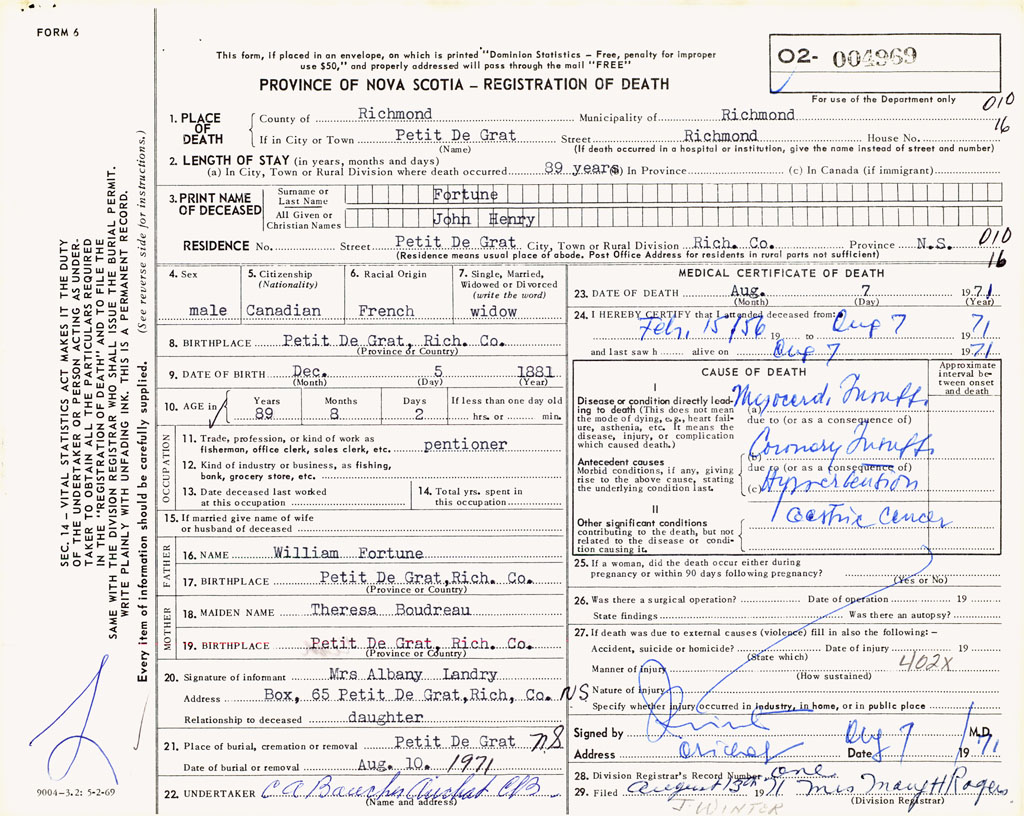 FORM 6
This form, if placed in an envelope, on which is printed "Dominion Statistics – Free, penalty for improper
use $50," and properly addressed will pass through the mail "FREE"
O2- 004969
PROVINCE OF NOVA SCOTIA – REGISTRATION OF DEATH
For use of the Department only
010
16
1. PLACE OF DEATH
County of Richmond Municipality of Richmond
If in City or Town Petit De Grat Street Richmond House No.
(Name) (If death occurred in a hospital or institution, give the name instead of street and number)
2. LENGTH OF STAY (in years, months and days)
(a) In City, Town or Rural Division where death occurred 89 years (b) In Province (c) In Canada (if immigrant)
3. PRINT NAME OF DECEASED
Surname or Last Name Fortune
All Given or Christian Names John Henry
RESIDENCE No. Street Petit De Grat City, Town or Rural Division Rich. Co. Province N.S.
(Residence means usual place of abode. Post Office Address for residents in rural parts not sufficient)
010
16
4. Sex
male
5. Citizenship
(Nationality)
Canadian
6. Racial Origin
French
7. Single, Married,
Widowed or Divorced
(write the word)
widow
8. BIRTHPLACE Petit De Grat, Rich. Co.
(Province or Country)
9. DATE OF BIRTH Dec. 5 1881
(Month) (Day) (Year)
10. AGE in
Years Months Days If less than one day old
89 8 2 hrs. or min.
OCCUPATION
11. Trade, profession, or kind of work as
fisherman, office clerk, sales clerk, etc. pentioner
12. Kind of industry or business, as fishing,
bank, grocery store, etc.
13. Date deceased last worked
at this occupation
14. Total yrs. spent in
this occupation
15. If married give name of wife
or husband of deceased
FATHER
16. NAME William Fortune
17. BIRTHPLACE Petit De Grat,Rich. Co.
(Province or Country)
MOTHER
18. MAIDEN NAME Theresa Boudreau
19. BIRTHPLACE Petit De Grat, Rich. Co.
(Province or Country)
20. Signature of informant Mrs Albany Landry
Address Box, 65 Petit De Grat,Rich, Co. NS
Relationship to deceased daughter
21. Place of burial, cremation or removal Petit De Grat N.S
Date of burial or removal Aug. 10. 1971
22. UNDERTAKER
(Name and address)
MEDICAL CERTIFICATE OF DEATH
23. DATE OF DEATH Aug. 7 1971
(Month) (Day) (Year)
24. I HEREBY CERTIFY that I attended deceased from:
Feb, 15/56 19 to Aug 7 71
and last saw h alive on Aug 7 1971
CAUSE OF DEATH
Approximate interval between onset and death
I
Disease or condition directly leading
to death (This does not mean
the mode of dying, e.g., heart failure,
asthenia, etc. It means the
disease, injury, or complication
which caused death.)
(a) Myocard. Insuff.
due to (or as a consequence of)
Antecedent causes
Morbid conditions, if any, giving
rise to the above cause, stating
the underlying condition last.
(b) Coronary Insuff.
due to (or as a consequence of)
(c) Hypertension
II
Other significant conditions
contributing to the death, but not
related to the disease or condition
causing it.
Gastric Cancer
25. If a woman, did the death occur either during
pregnancy or within 90 days following pregnancy?
(Yes or No)
26. Was there a surgical operation? Date of operation 19
State findings Was there an autopsy?
27. If death was due to external causes (violence) fill in also the following: –
Accident, suicide or homicide? Date of injury 19
(State which)
402X
Manner of injury
(How sustained)
Nature of injury
Specify whether injury occurred in industry, in home, or in public place
Signed by M.D.
Address Arichat Date Aug 7 19 71
28. Division Registrar's Record Number one
29. Filed August 13th 1971 Mrs Mary H Rogers
(Division Registrar)
J. WINTER
SEC. 14 – VITAL STATISTICS ACT MAKES IT THE DUTY
OF THE UNDERTAKER OR PERSON ACTING AS UNDER-
TAKER TO OBTAIN ALL THE PARTICULARS REQUIRED
IN THE "REGISTRATION OF DEATH" AND TO FILE THE
SAME WITH THE DIVISION REGISTRAR WHO SHALL ISSUE THE BURIAL PERMIT.
WRITE PLAINLY WITH UNFADING INK. THIS IS A PERMANENT RECORD.
Every item of information should be carefully supplied. (See reverse side for instructions.)
9004–3.2: 5-2-69